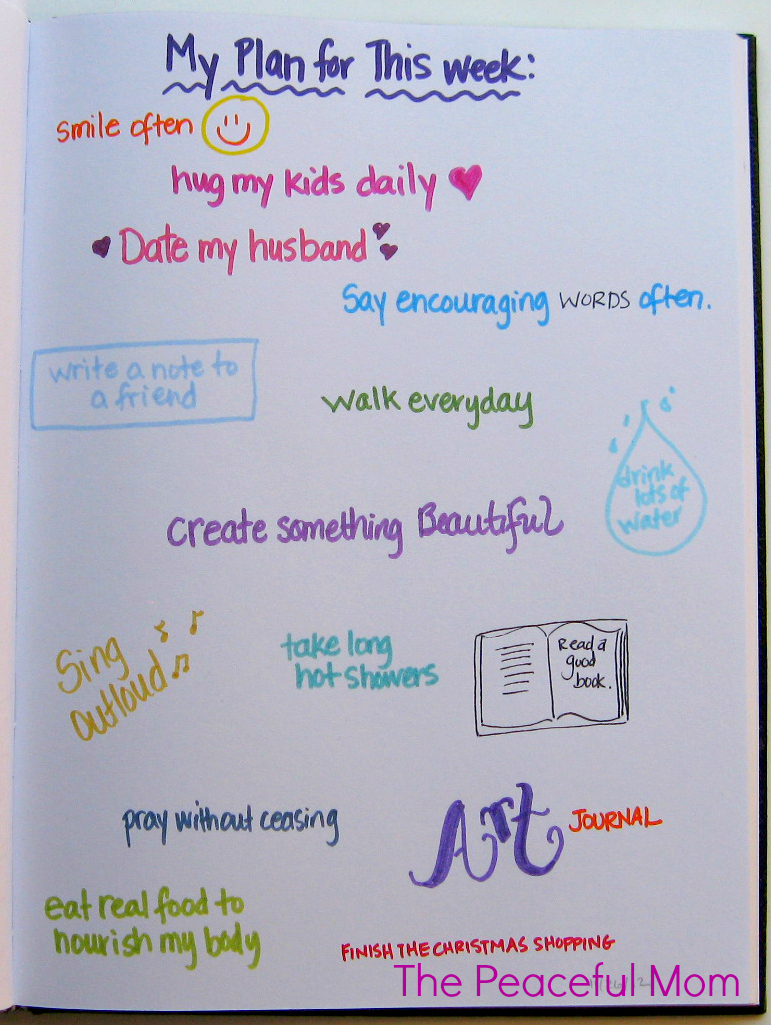 My Plan for This week:
smile often
hug my kids daily
Date my husband
Say encouraging WORDS often.
write a note to
a friend
walk everyday
drink
lots of
water
create something Beautiful
Sing
outloud
take long
hot showers
Read a
good
book.
pray without ceasing
Art JOURNAL
eat real food to
nourish my body
FINISH THE CHRISTMAS SHOPPING
The Peaceful Mom